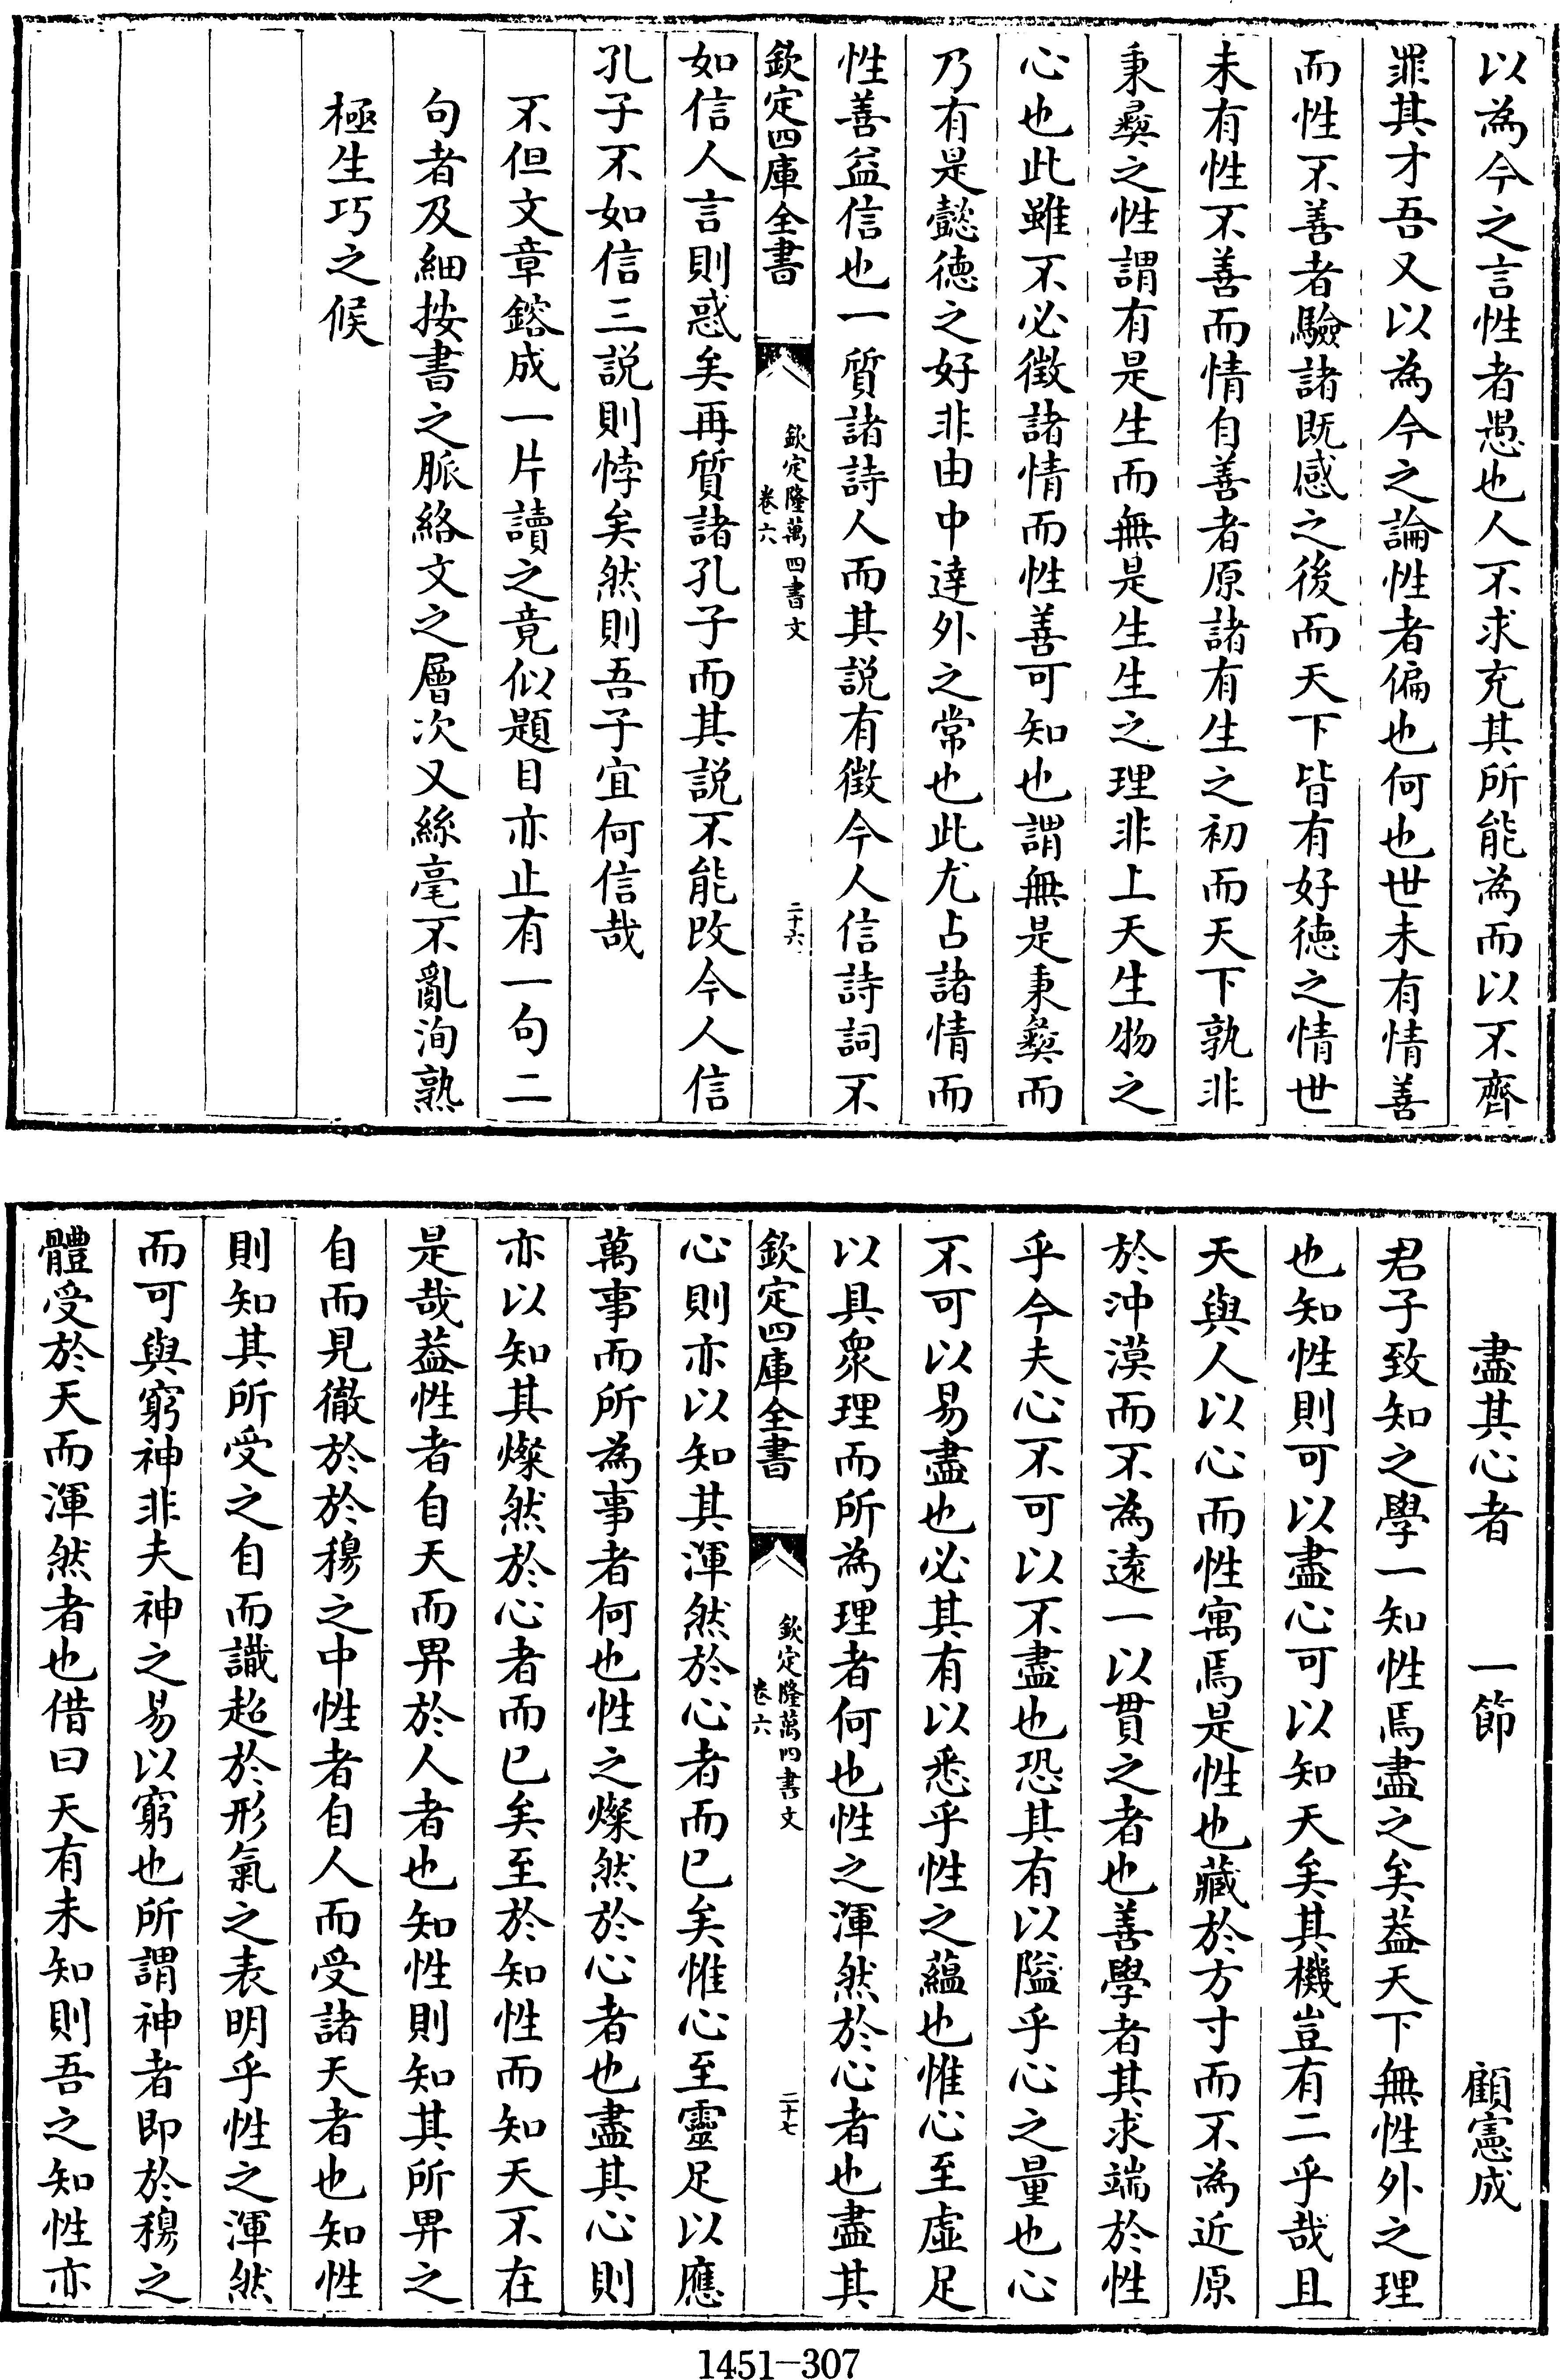 以為今之言性者愚也人不求充其所能為而以不齊
罪其才吾又以為今之論性者偏也何也世未有情善
而性不善者驗諸既感之後而天下皆有好德之情世
未有性不善而情自善者原諸有生之初而天下孰非
秉彛之性謂有是生而無是生生之理非上天生物之
心也此雖不必徵諸情而性善可知也謂無是秉彛而
乃有是懿德之好非由中達外之常也此尤占諸情而
性善益信也一質諸詩人而其説有徵今人信詩詞不
欽定四庫全書
欽定隆萬四書文
卷六
二十六
如信人言則惑矣再質諸孔子而其説不能改今人信
孔子不如信三説則悖矣然則吾子宜何信哉
不但文章鎔成一片讀之竟似題目亦止有一句二
句者及細按書之脈絡文之層次又絲毫不亂洵熟
極生巧之候
盡其心者 一節 顧憲成
君子致知之學一知性焉盡之矣葢天下無性外之理
也知性則可以盡心可以知天矣其機豈有二乎哉且
天與人以心而性寓焉是性也藏於方寸而不為近原
於沖漠而不為遠一以貫之者也善學者其求端於性
乎今夫心不可以不盡也恐其有以隘乎心之量也心
不可以易盡也必其有以悉乎性之蘊也惟心至虛足
以具衆理而所為理者何也性之渾然於心者也盡其
欽定四庫全書
欽定隆萬四書文
卷六
二十七
心則亦以知其渾然於心者而已矣惟心至靈足以應
萬事而所為事者何也性之燦然於心者也盡其心則
亦以知其燦然於心者而已矣至於知性而知天不在
是哉葢性者自天而畀於人者也知性則知其所畀之
自而見徹於於穆之中性者自人而受諸天者也知性
則知其所受之自而識超於形氣之表明乎性之渾然
而可與窮神非夫神之易以窮也所謂神者即於穆之
體受於天而渾然者也借曰天有未知則吾之知性亦
1451-307